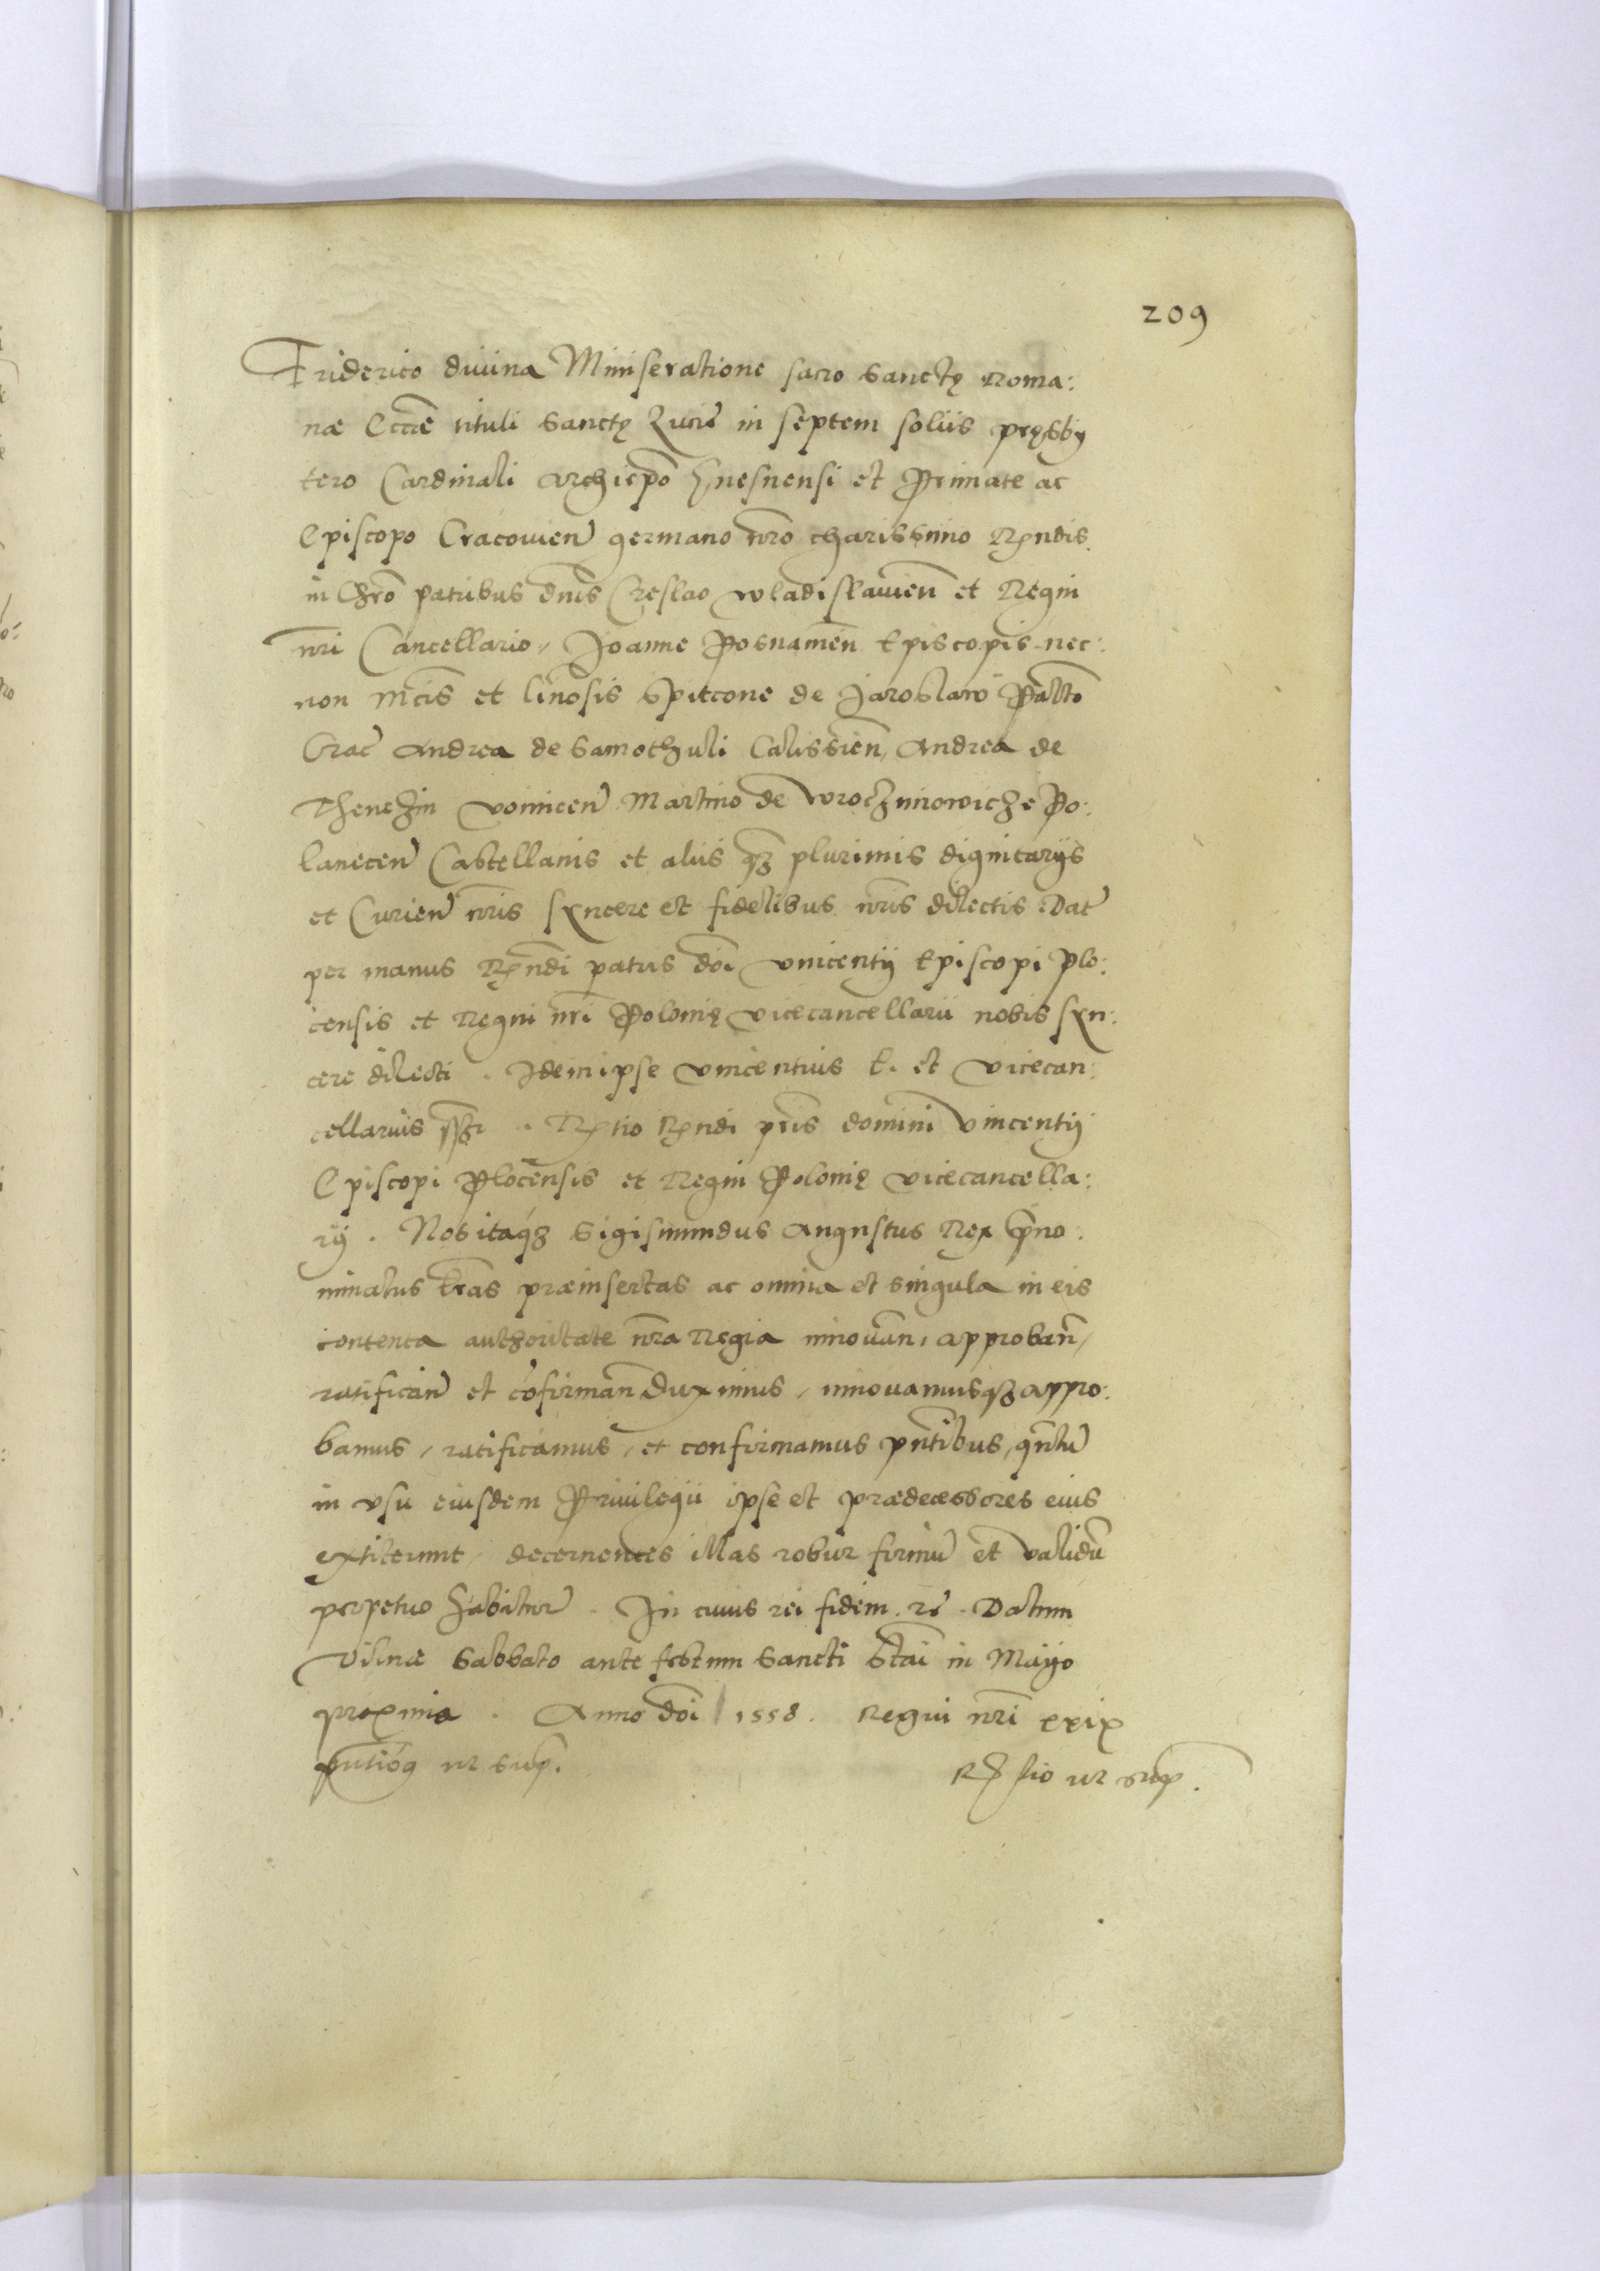 209
Friderico diuina Miniseratione sacro sanctę Roma:
næ Eccĩæ tituli Sanctę Luciæ in septem soliis pręsby
tero Cardinali archiepõ Gnesnensi et Primate ac
Episcopo Cracouien̄ germano nr̄o charissimo Rn̄dis
in Chrō patribus dn̄is Creslao wladislauien̄ et Regni
nr̄i Cancellario, Joanne Posnamen̄ Episcopis nec:
non Mc̄is et Gn̄osis Spitcone de Jaroslaw Pal̄to
Crac̄ Andrea de Samothuli Calissien̄, Andrea de
Thenczin Voinicen̄ Martino de Wroczimowicze Po:
lanecen̄ Castellanis et aliis q̃z plurimis dignitarijs
et Curien̄ nr̄is sÿncere et fidelibus nr̄is dilectis. Dat̄
per manus Rn̄di patris dn̄i Vincentij Episcopi Plo:
censis et Regni nr̄i Polonię vicecancellarii nobis sÿn:
cere dilecti. Idem ipse Vincentius E. et Vicecan:
cellarius sszt. Rtio Rn̄di pr̄is domini Vincentij
Episcopi Plocensis et Regni Polonię vicecancella:
rij. Nos itaq́z Sigismundus Augustus Rex p̄no:
minatus lr̄as præinsertas ac omnia et singula in eis
contenta authoritate nr̄a Regia innouan̄, approban̄,
ratifican̄ et cõfirman̄ duximus, innouamusq́z appro:
bamus, ratificamus, et confirmamus pn̄tibus, qn̄tū
in vsu eiusdem Priuilegii ipse et prædecessores eius
extiterunt, decernentes illas robur firmū et validū
perpetuo habitur̄. In cuius rei fidem rc̄. Datum
Vilnæ Sabbato ante festum Sancti Stāi in Maÿo
proxima. Anno dn̄i 1558. Regni nr̄i xxix
pn̄tibq ut sup̄.
Rſſio ut sup̄.